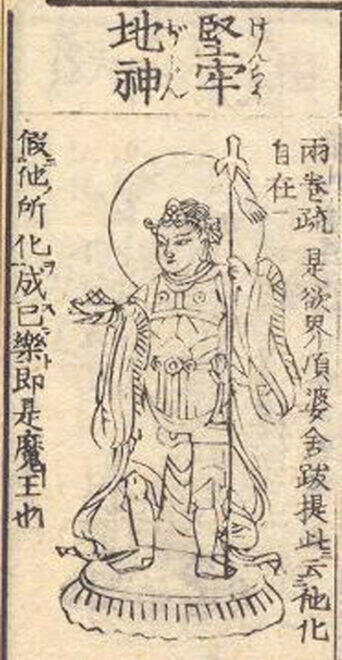 堅牢
けんらう
地神
ぢじん
兩卷疏 是欲界頂婆舍跋提此云他化
自在
假他所化成已樂即是魔王也